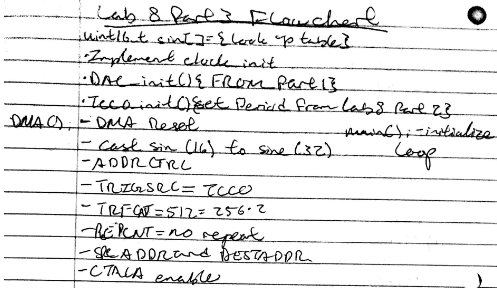 Lab 8 Part 3 Flowchart
uint16_t sin[]={look up table}
·Implement clock init
·DAC_init(){FROM Part 1}
·Tcc0_init(){set Period from Lab8 Part 2}
DMA(). - DMA Reset
main(); -initialize
- cast sin (16) to sine (32)
loop
- ADDRCTRL
- TRIGSRC = TCC0
- TRFCNT = 512 = 256·2
- REPCNT = no repeat
- SRCADDR and DESTADDR
- CTRLA enable